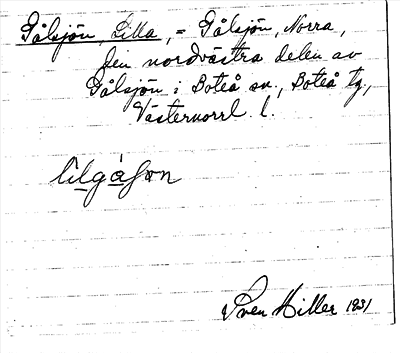 Gålsjön, Lilla, = Gålsjön, Norra,
den nordvästra delen av
Gålsjön i Boteå sn., Boteå tg,
Västernorrl. l.
lilgåsøn
Sven Hiller 1931